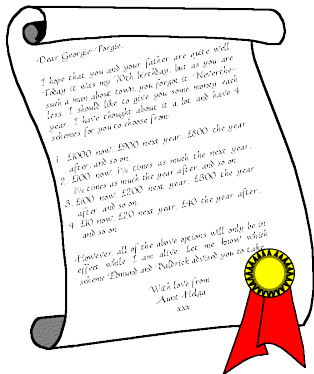 Dear Georgie-Porgie,
I hope that you and your father are quite well.
Today it was my 70th birthday, but as you are
such a man about town, you forgot it. Neverthe-
less, I should like to give you some money each
year. I have thought about it a lot and have 4
schemes for you to choose from:
1. £1000 now, £900 next year, £800 the year
after, and so on.
2. £100 now, 1½ times as much the next year,
1½ times as much the year after and so on
3. £100 now, £200 next year, £300 the year
after and so on.
4. £10 now, £20 next year, £40 the year after,
and so on.
However, all of the above options will only be in
effect while I am alive. Let me know which
scheme Edmund and Baldrick advised you to take.
With love from
Aunt Helga
xxx